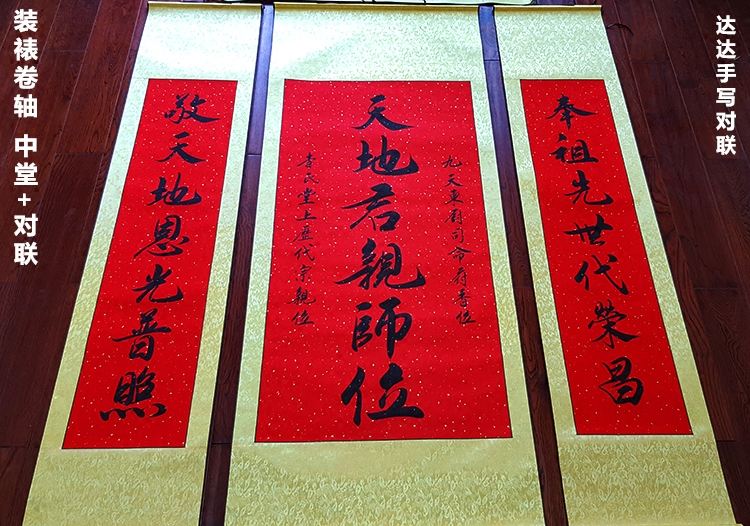 装裱卷轴 中堂+对联
达达手写对联
奉祖先世代荣昌
九天东厨司命府君位
天地君親師位
李氏堂上历代宗親位
敬天地恩光普照